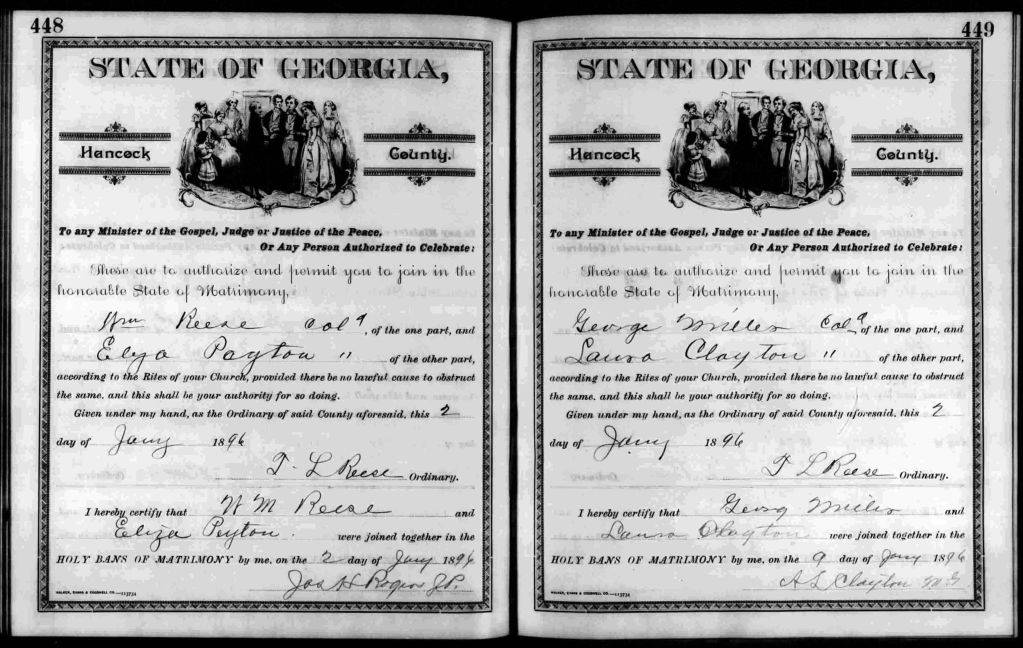 448
STATE OF GEORGIA,
Hancock County.
To any Minister of the Gospel, Judge or Justice of the Peace,
Or Any Person Authorized to Celebrate:
These are to authorize and permit you to join in the
honorable State of Matrimony,
Wm Reese Cold, of the one part, and
Elyza Payton " of the other part,
according to the Rites of your Church, provided there be no lawful cause to obstruct
the same, and this shall be your authority for so doing.
Given under my hand, as the Ordinary of said County aforesaid, this 2
day of Jany 1896
T. L Reese Ordinary.
I hereby certify that W M Reese and
Eliza Peyton were joined together in the
HOLY BANS OF MATRIMONY by me, on the 2 day of Jany 1896
Jas H Rogers J.P.
WALKER, EVANS & COGSWELL CO.—113734
449
STATE OF GEORGIA,
Hancock County.
To any Minister of the Gospel, Judge or Justice of the Peace,
Or Any Person Authorized to Celebrate:
These are to authorize and permit you to join in the
honorable State of Matrimony,
George Miller Cold, of the one part, and
Laura Clayton " of the other part,
according to the Rites of your Church, provided there be no lawful cause to obstruct
the same, and this shall be your authority for so doing.
Given under my hand, as the Ordinary of said County aforesaid, this 2
day of Jany 1896
T L Reese Ordinary.
I hereby certify that Georg Miller and
Laura Clayton were joined together in the
HOLY BANS OF MATRIMONY by me, on the 9 day of Jany 1896
A L Clayton M G
WALKER, EVANS & COGSWELL CO.—113734